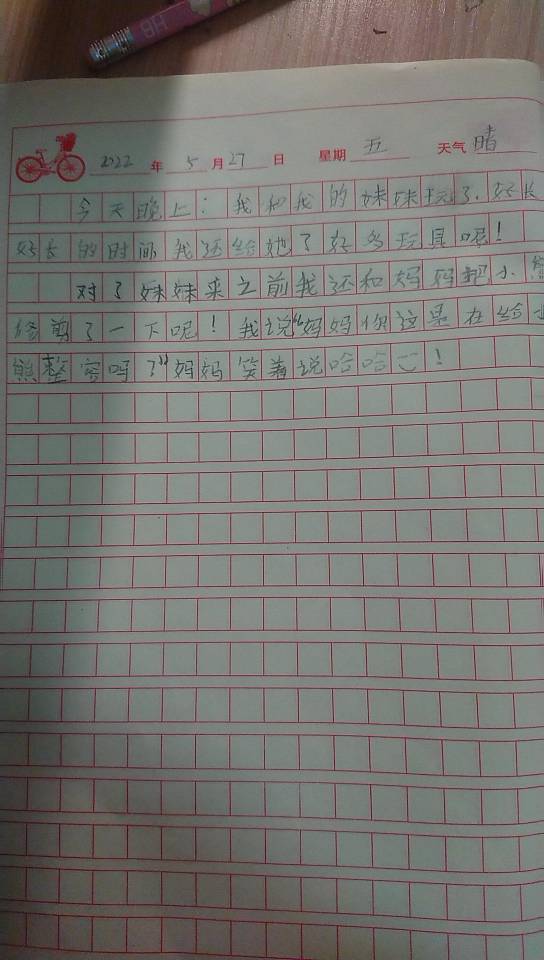 HB
2022 年 5 月 27 日 星期 五 天气 晴
今天晚上：我和我的妹妹玩了.好长
好长的时间我还给她了好多玩具呢！
对了妹妹来之前我还和妈妈把小熊
修剪了一下呢！我说“妈妈你这是在给小
熊整容吗？”妈妈笑着说哈哈！